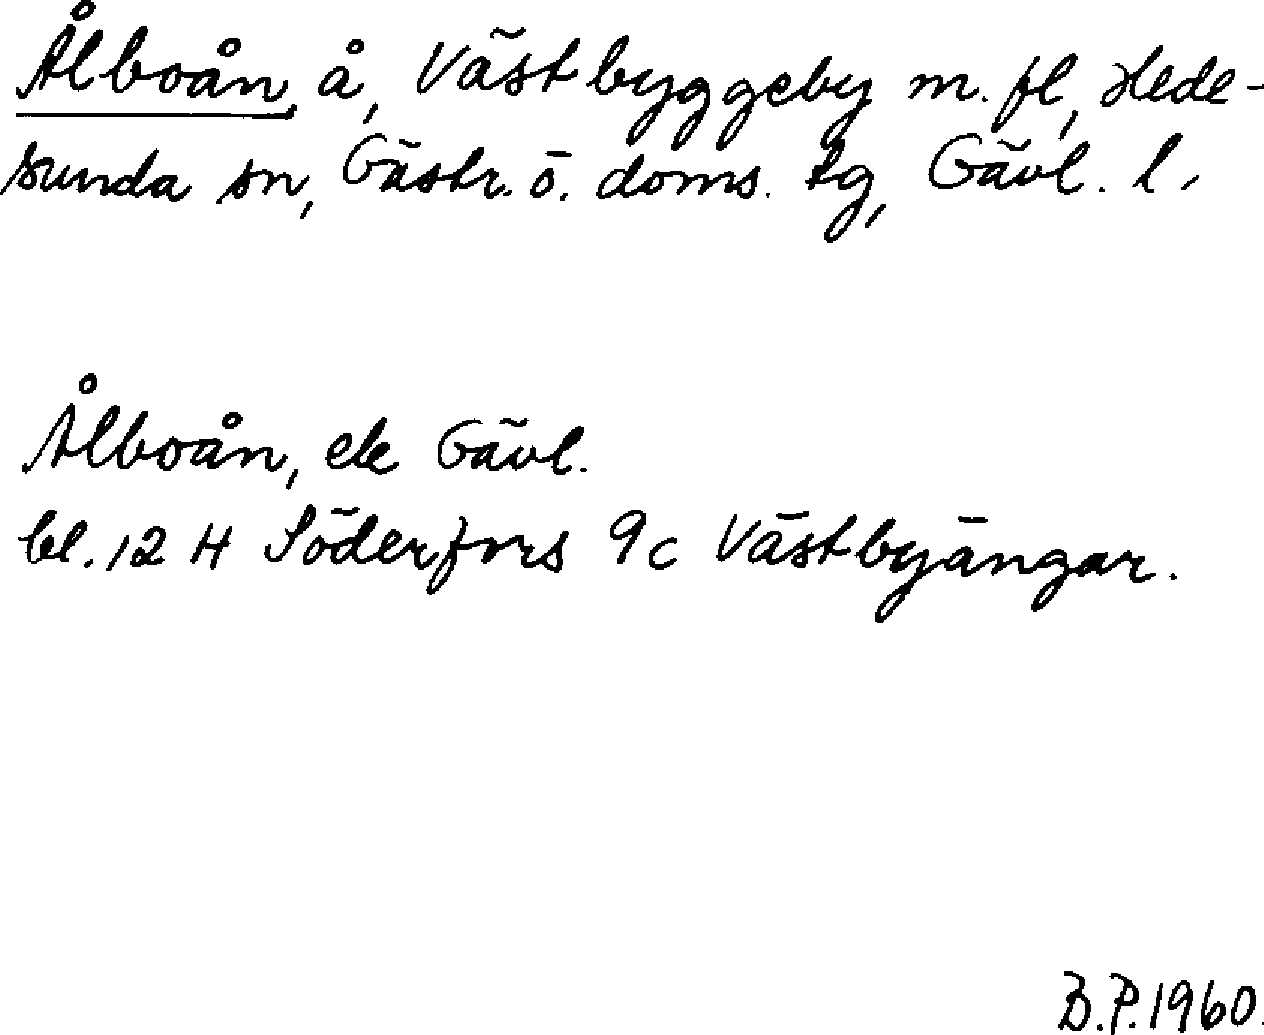 Ålboån, å, Västbyggeby m.fl, Hede-
sunda sn, Gästr. ö. doms. tg, Gävl. l.
Ålboån, ek Gävl.
bl. 12 H Söderfors 9c Västbyängar.
B.P. 1960.